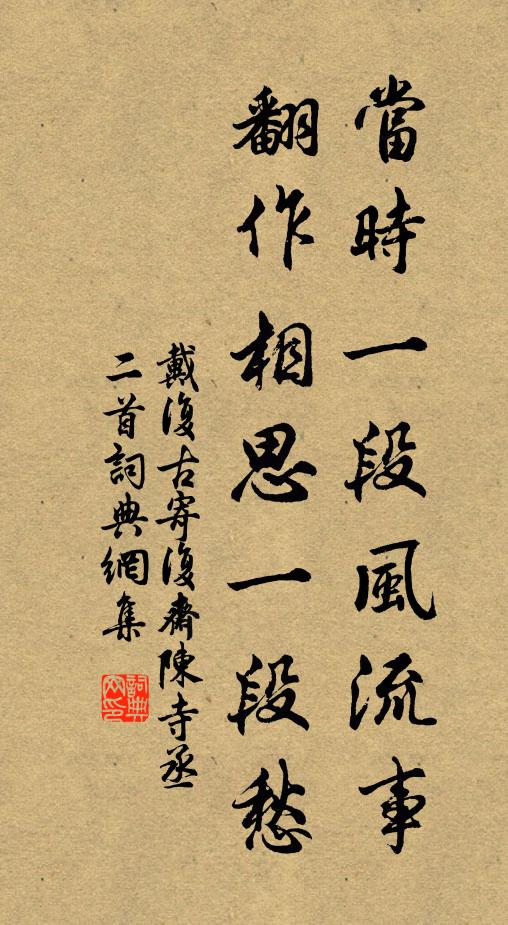 當時一段風流事
翻作相思一段愁
戴復古寄復齋陳寺丞
二首詞典網集
詞典